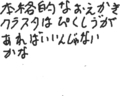 本格的なおえかき
クラスタはぴくしうが
あればいいんじゃない
かな